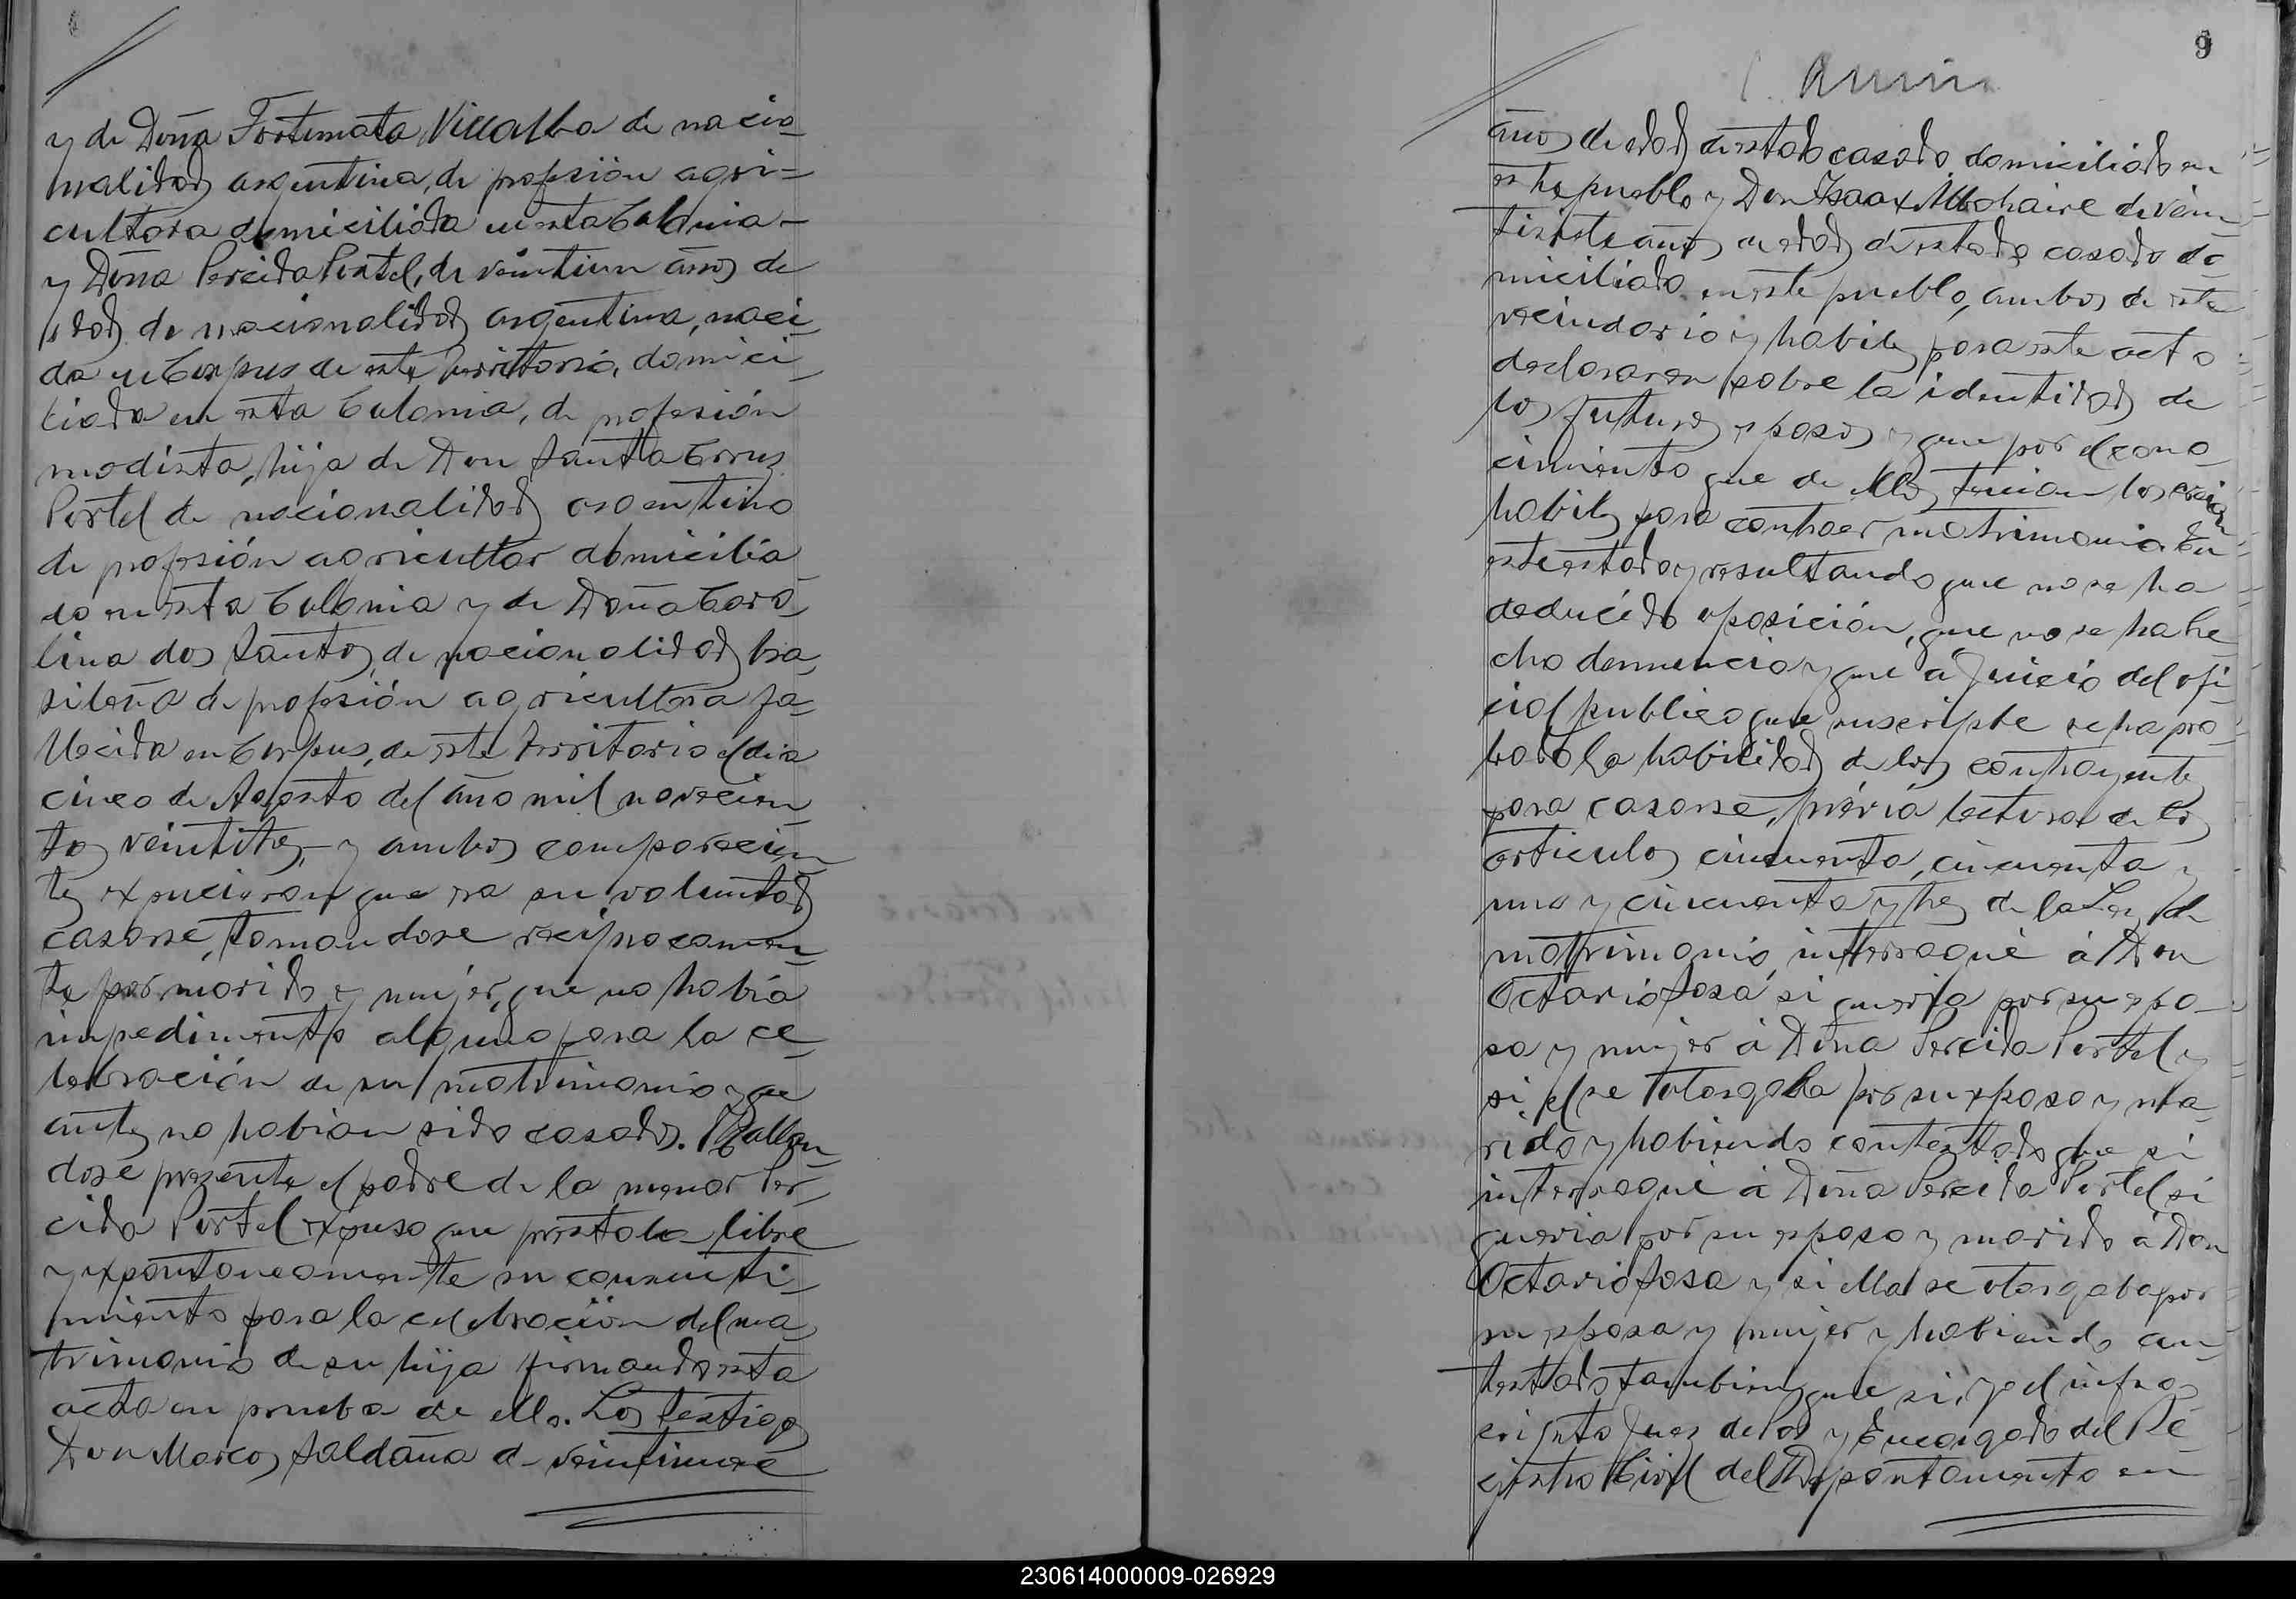 y de Doña Fortunata Villalba de nacio-
nalidad argentina, de profesión agri-
cultora domiciliada en esta Colonia-
y Doña Percida Portel, de veintiun años de
edad de nacionalidad argentina, naci-
da en Corpus de este territorio, domici-
liada en esta Colonia, de profesión
modista, hija de Don Santa Cruz
Portel de nacionalidad argentino
de profesión agricultor domicilia-
do en esta Colonia y de Doña Caro-
lina dos Santos, de nacionalidad bra-
sileña de profesión agricultora fa-
llecida en Corpus, de este territorio el dia
cinco de Agosto del año mil novecien-
tos veintitres, y ambos comparecien-
tes expucieron que era su voluntad
casarse, tomandose reciprocamen-
te por marido y mujer, que no había
impedimento alguno para la ce-
lebración de su matrimonio y que
antes no habian sido casados. Hallan-
dose presente el padre de la menor Per-
cida Portel expuso que prestaba libre
y expontoneamente su consenti-
miento para la celebración del ma-
trimonio de su hija firmando esta
acta en prueba de ello. Los testigos
Don Marcos Saldaña de veintinueve
9
años de edad de estado casado domiciliado en
este pueblo y Don Isaax Albohaire de vein-
tisiete años de edad de estado casado do-
miciliado en este pueblo, ambos de este
vecindario y habiles para este acto
declararon sobre la identidad de
los futuros esposos y que por el cono-
cimiento que de ellos tenian los creian
habiles para contraer matrimonio. En
este estado y resultando que no se ha
deducido oposición, que no se ha he-
cho denuncia y que á juicio del ofi-
cial publico que suscripbe se ha pro-
bado la habilidad de los contrayentes
para casarse, prévia lectura de los
articulos cincuenta, cincuenta y
uno y cincuenta y tres de la Ley de
matrimonio, interrogué á Don
Octavio Sosa si queria por su espo-
sa y mujer á Doña Percida Portel y
si el se otorgaba por su esposo y ma-
rido y habiendo contestado que si
interrogué á Doña Percida Portel si
queria por su esposo y marido á Don
Octavio Sosa y si ella se otorgaba por
su esposa y mujer y habiendo con-
testado tambien que si, yo el infras-
cripto Juez de Paz y Encargado del Re-
gistro Civil del Departamento en
230614000009-026929